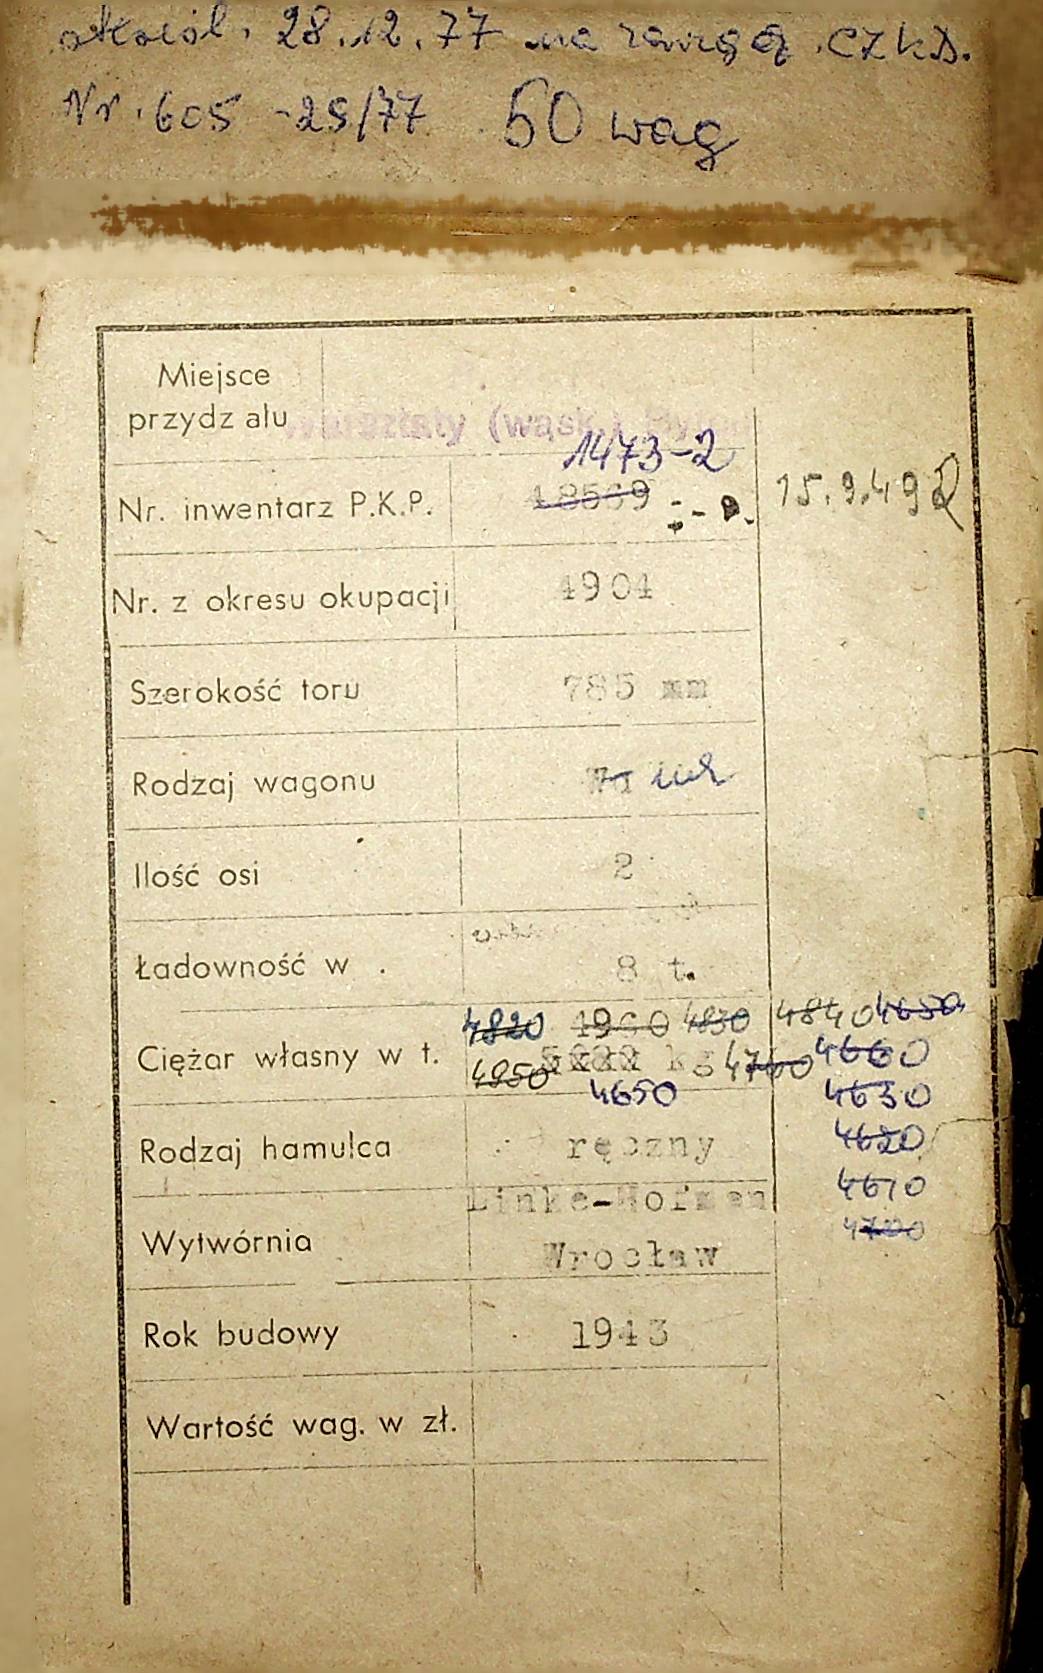 28.12.77 na
Nr. 605 -25/77 50 wag
Miejsce
przydz ału
warsztaty (wąsk.)
1473-2
Nr. inwentarz P.K.P. 18569 15.9.49
Nr. z okresu okupacji 4904
Szerokość toru 785 mm
Rodzaj wagonu
Ilość osi 2
Ładowność w . 8 t.
4820 4960 4830 4840 4650
Ciężar własny w t. kg 4740 4660
4950 4650 4630
4620
Rodzaj hamulca ręczny
4610
Linke-Hofman
4700
Wytwórnia Wrocław
Rok budowy 1943
Wartość wag. w zł.